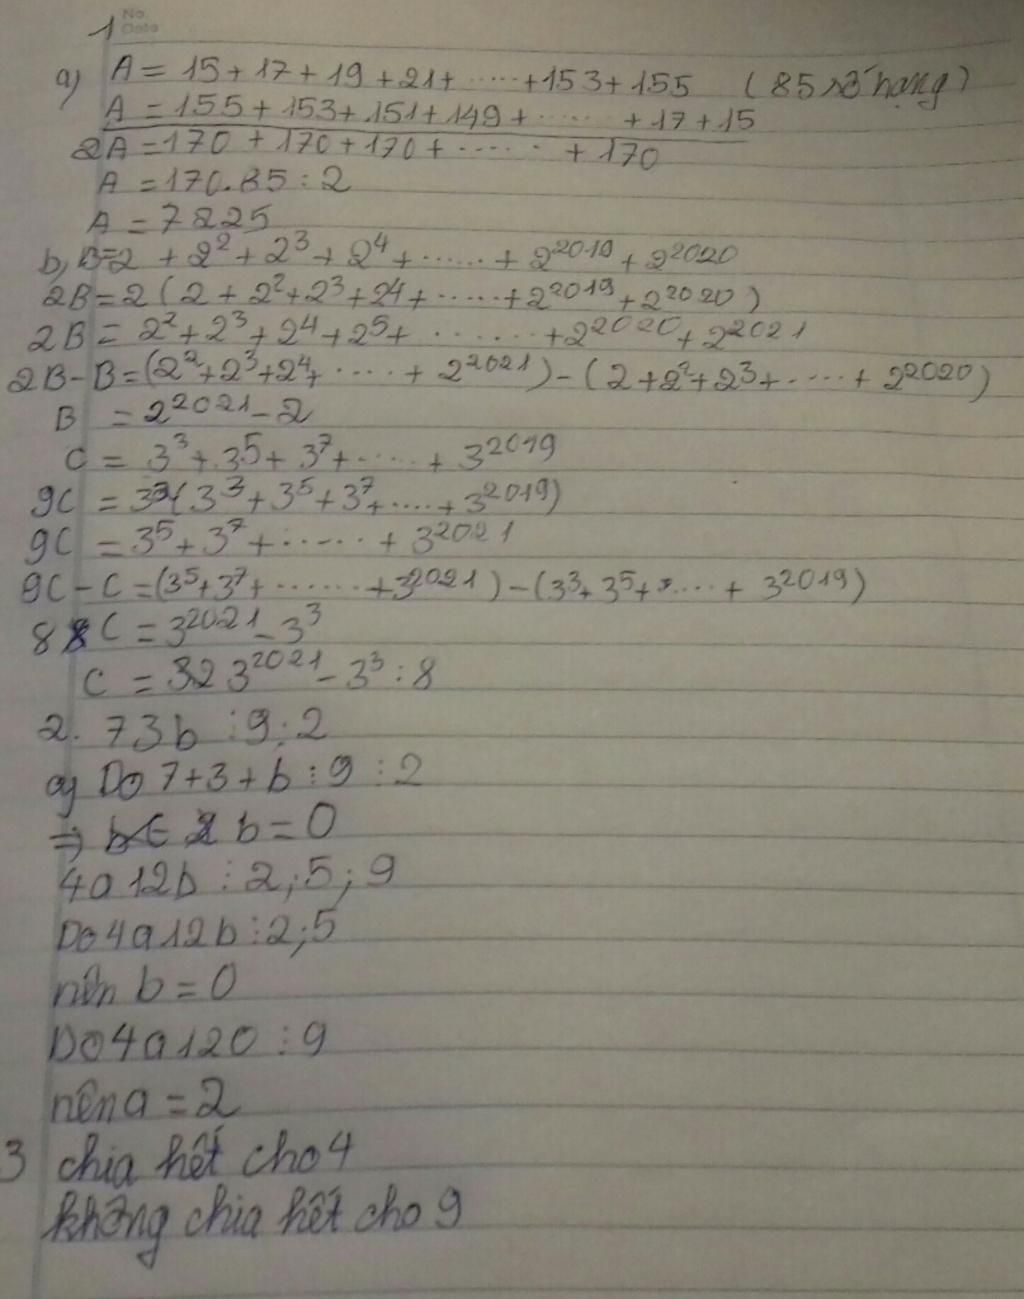 No.
Date
1
a) A = 15 + 17 + 19 + 21 + ...... + 153 + 155 (85 số hạng)
A = 155 + 153 + 151 + 149 + ...... + 17 + 15
2A = 170 + 170 + 170 + ...... + 170
A = 170.85 : 2
A = 7225
b, B = 2 + 2² + 2³ + 2⁴ + ...... + 2²⁰¹⁹ + 2²⁰²⁰
2B = 2 ( 2 + 2² + 2³ + 2⁴ + ...... + 2²⁰¹⁹ + 2²⁰²⁰ )
2B = 2² + 2³ + 2⁴ + 2⁵ + ........ + 2²⁰²⁰ + 2²⁰²¹
2B - B = (2² + 2³ + 2⁴ + ...... + 2²⁰²¹) - (2 + 2² + 2³ + ..... + 2²⁰²⁰)
B = 2²⁰²¹ - 2
C = 3³ + 3⁵ + 3⁷ + ...... + 3²⁰¹⁹
9C = 3²( 3³ + 3⁵ + 3⁷ + ..... + 3²⁰¹⁹)
9C = 3⁵ + 3⁷ + ...... + 3²⁰²¹
9C - C = (3⁵ + 3⁷ + ....... + 3²⁰²¹) - (3³ + 3⁵ + ..... + 3²⁰¹⁹)
8C = 3²⁰²¹ - 3³
C = 3²⁰²¹ - 3³ : 8
2. 73b ⋮ 9 : 2
a) Do 7 + 3 + b ⋮ 9 : 2
⇒ b = 0
4a12b ⋮ 2; 5; 9
Do 4a12b ⋮ 2; 5
nên b = 0
Do 4a120 ⋮ 9
nên a = 2
3 chia hết cho 4
không chia hết cho 9